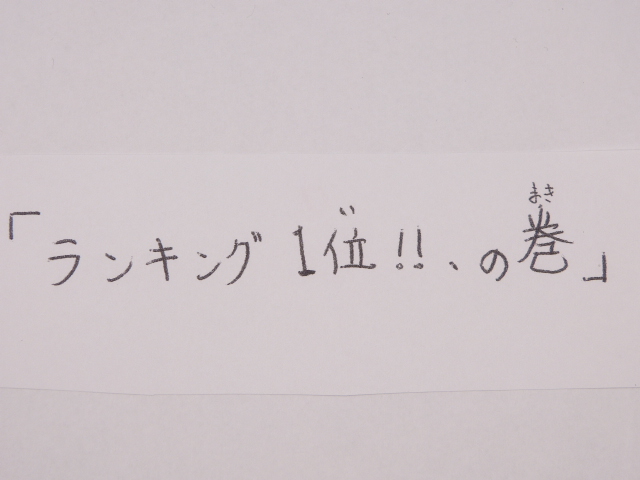 「ランキング1位!!、の巻」